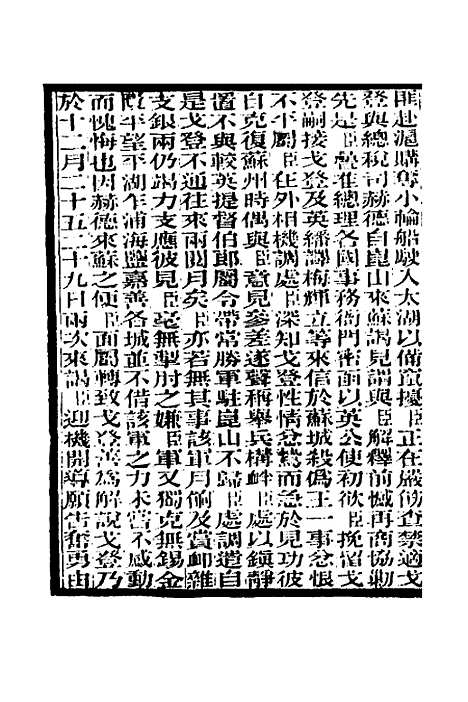 匪赴滬購奪小輪船駛入太湖以備竄擾臣正在嚴飭查禁適戈
登與總稅司赫德自崑山來蘇謁見謂與臣解釋前憾再商協勦
先是臣疊准總理各國事務衙門密函以英公使初欲臣挽留戈
登嗣接戈登及英繙譯梅輝立等來信於蘇城殺僞王一事忿恨
不平囑臣在外相機調處臣深知戈登性情忿鷙而急於見功彼
自克復蘇州時偶與臣意見參差遂聲稱舉兵構衅臣處以鎭靜
置不與較英提督伯郎屬令帶常勝軍駐崑山不歸臣處調遣自
是戈登不通往來兩閱月矣臣亦若無其事該軍月餉及賞卹雜
支銀兩仍竭力支應彼見臣毫無掣肘之嫌臣軍又獨克無錫金
匱平望平湖乍浦海鹽嘉善各城並不借該軍之力未嘗不感動
而愧悔也因赫德來蘇之便臣面屬轉致戈登善爲解說戈登乃
於十二月二十五二十九日兩次來謁臣迎機開導願告奮勇由